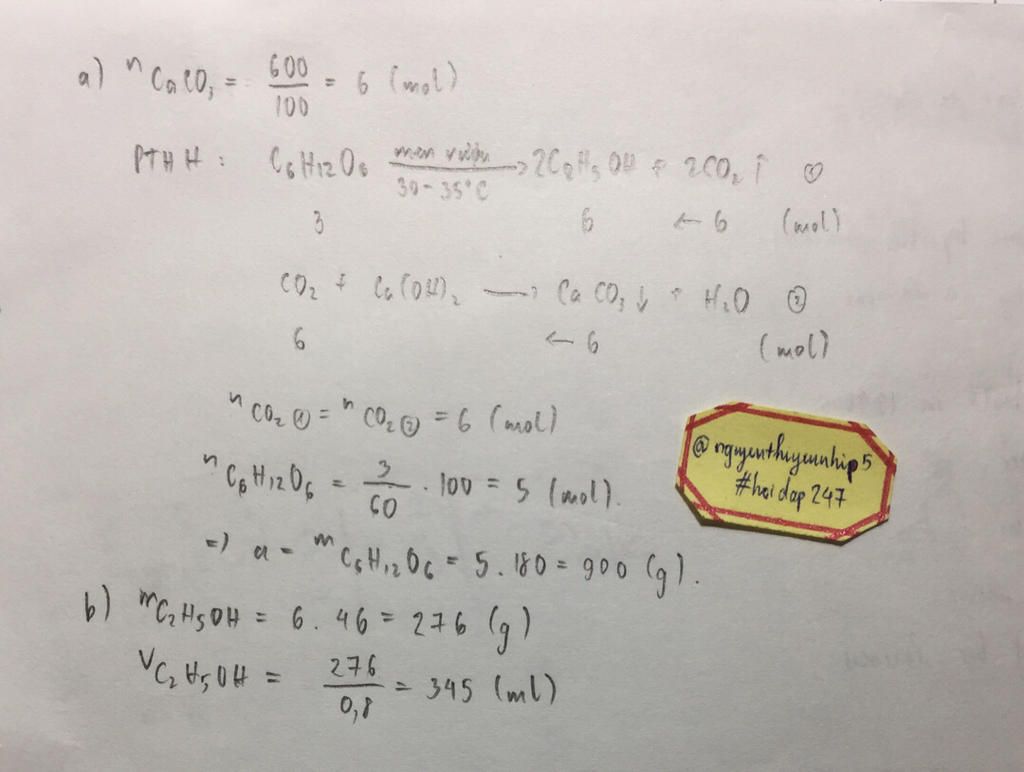 a) nCaCO₃ = 600/100 = 6 (mol)
PTHH : C₆H₁₂O₆ men rượu/30-35°C → 2C₂H₅OH + 2CO₂↑ ①
3 6 ← 6 (mol)
CO₂ + Ca(OH)₂ → CaCO₃↓ + H₂O ②
6 ← 6 (mol)
nCO₂① = nCO₂② = 6 (mol)
nC₆H₁₂O₆ = 3/60 . 100 = 5 (mol).
=) a = mC₆H₁₂O₆ = 5.180 = 900 (g).
b) mC₂H₅OH = 6.46 = 276 (g)
VC₂H₅OH = 276/0,8 = 345 (ml)
@nguyenthuyennhip5
#hoidap247